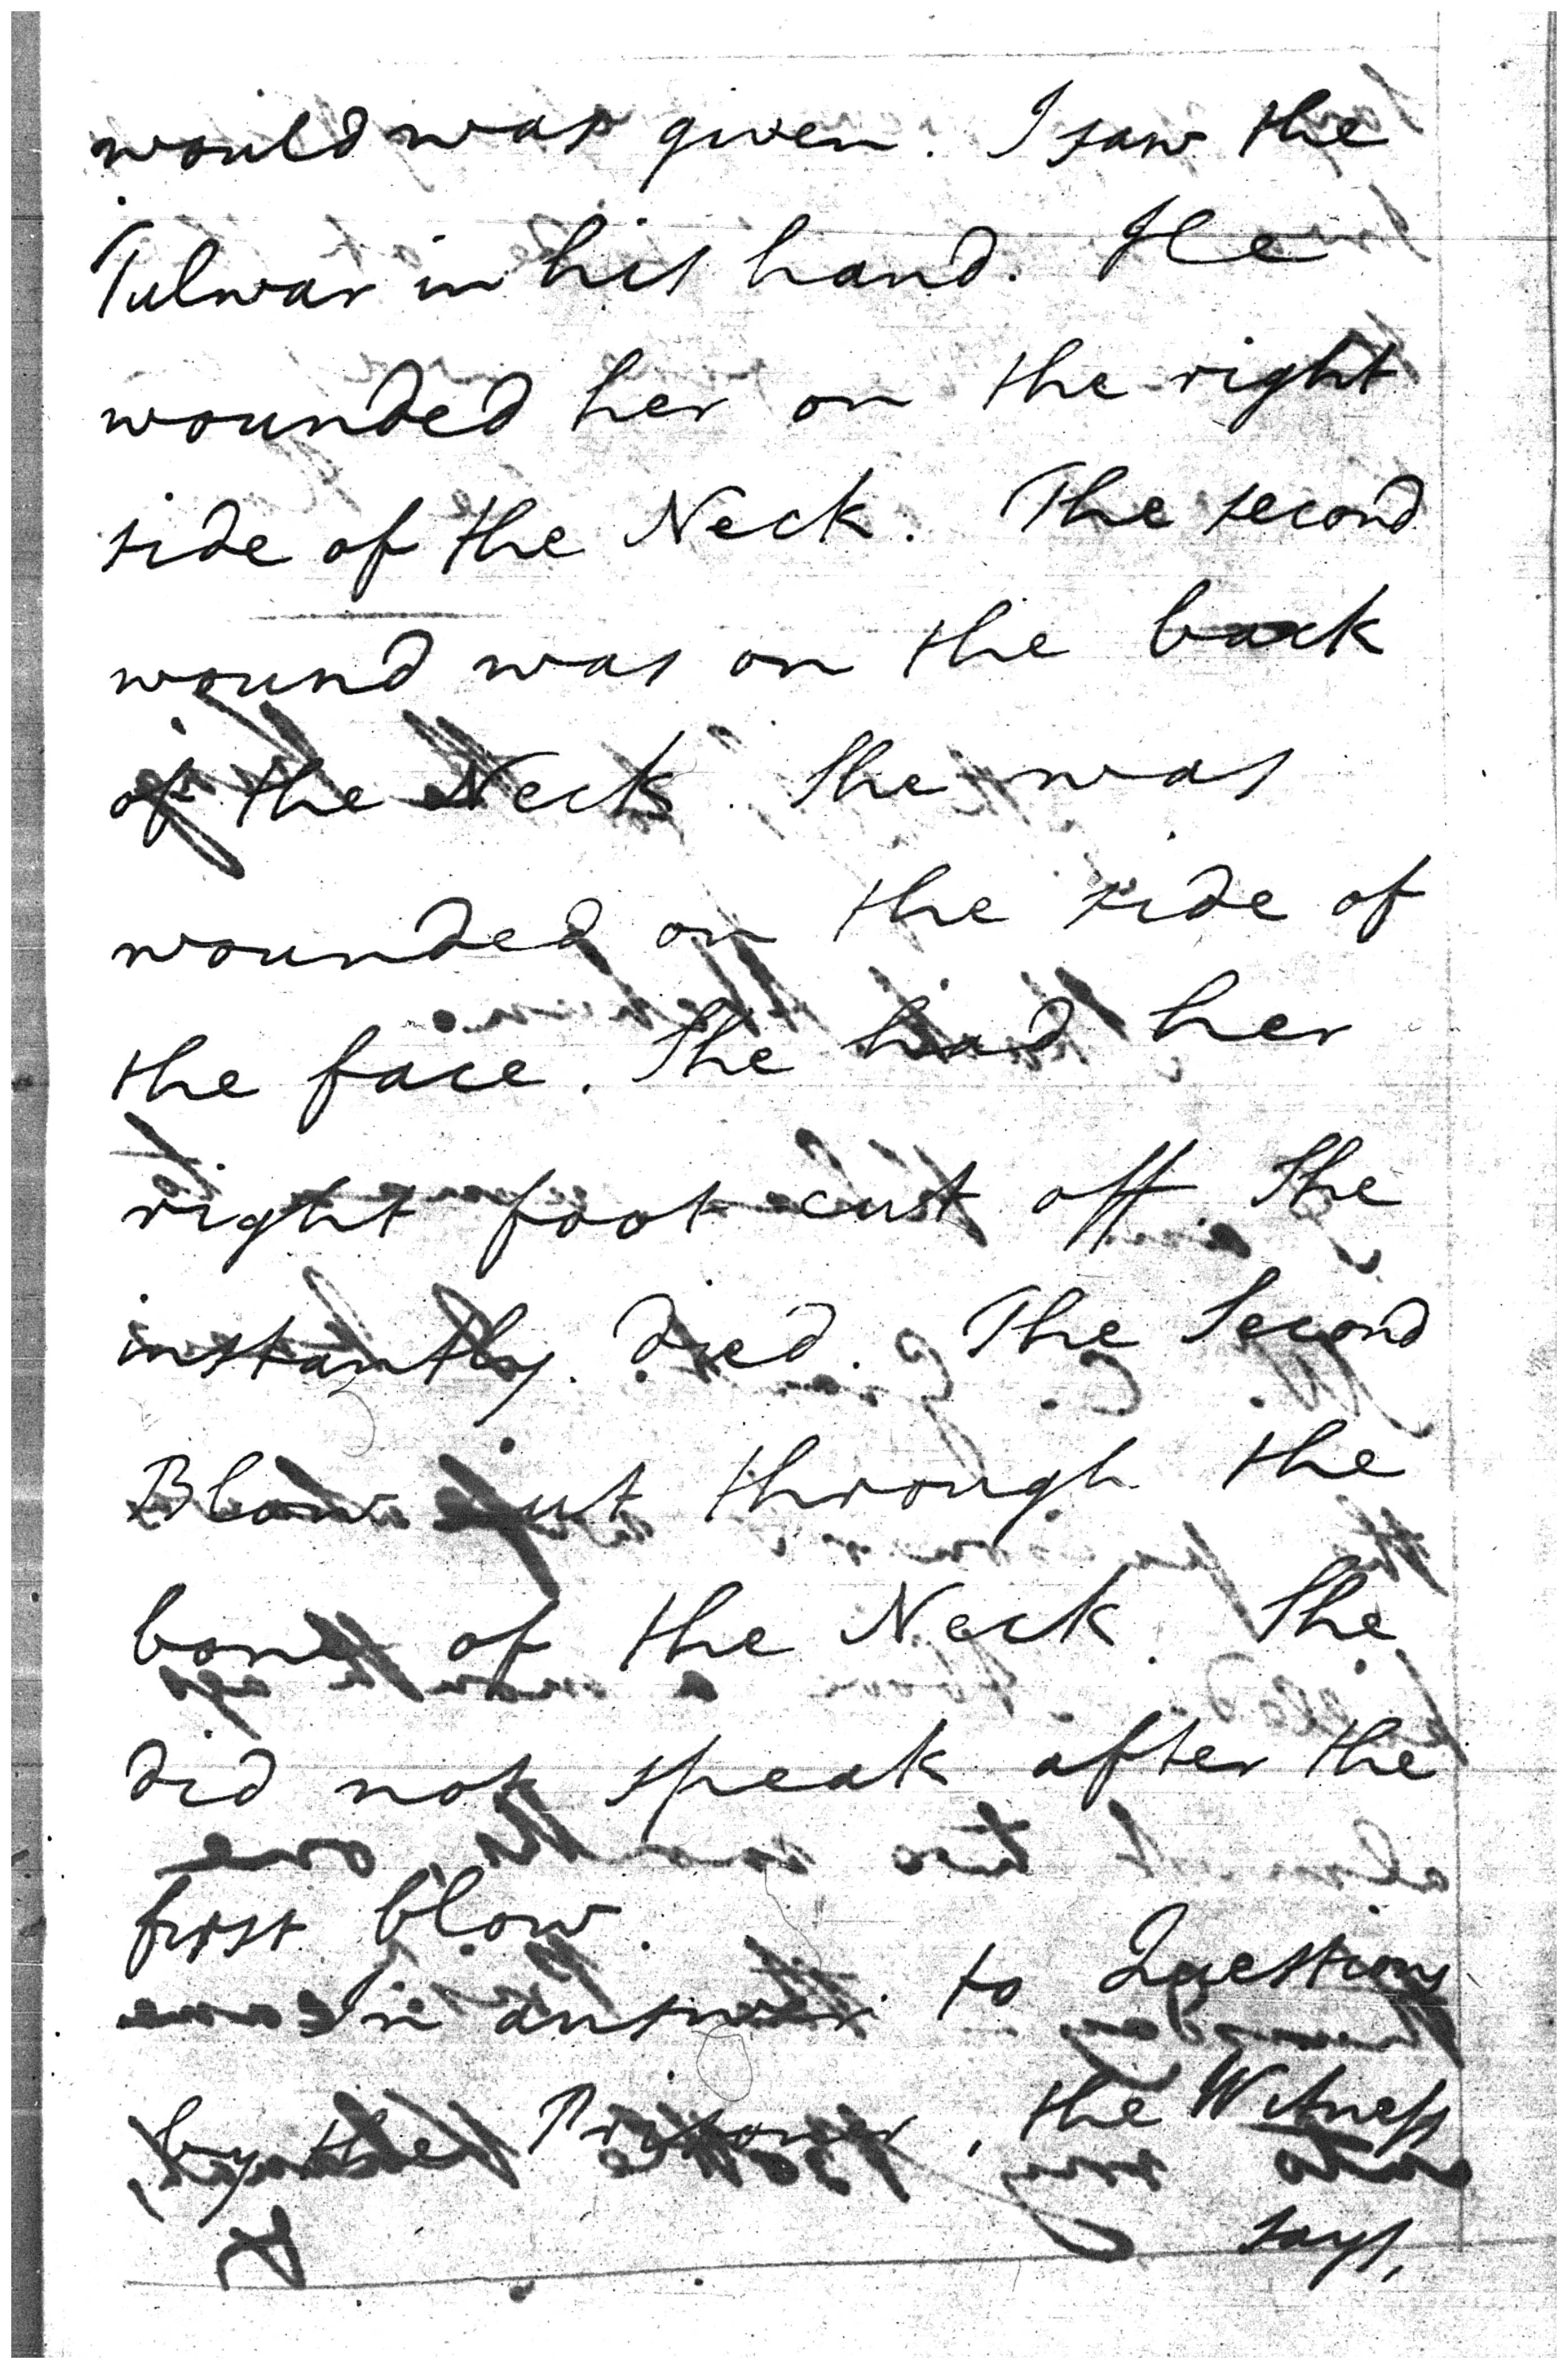 would was given. I saw the
Tulwar in his hand. He
wounded her on the right
side of the Neck. The second
wound was on the back
of the Neck. She was
wounded on the side of
the face. She had her
right foot cut off She
instantly died. The Second
Blow cut through the
bone of the Neck. She
did not speak after the
first blow.
In answer to Questions
by the Prisoner, the Witness
says,